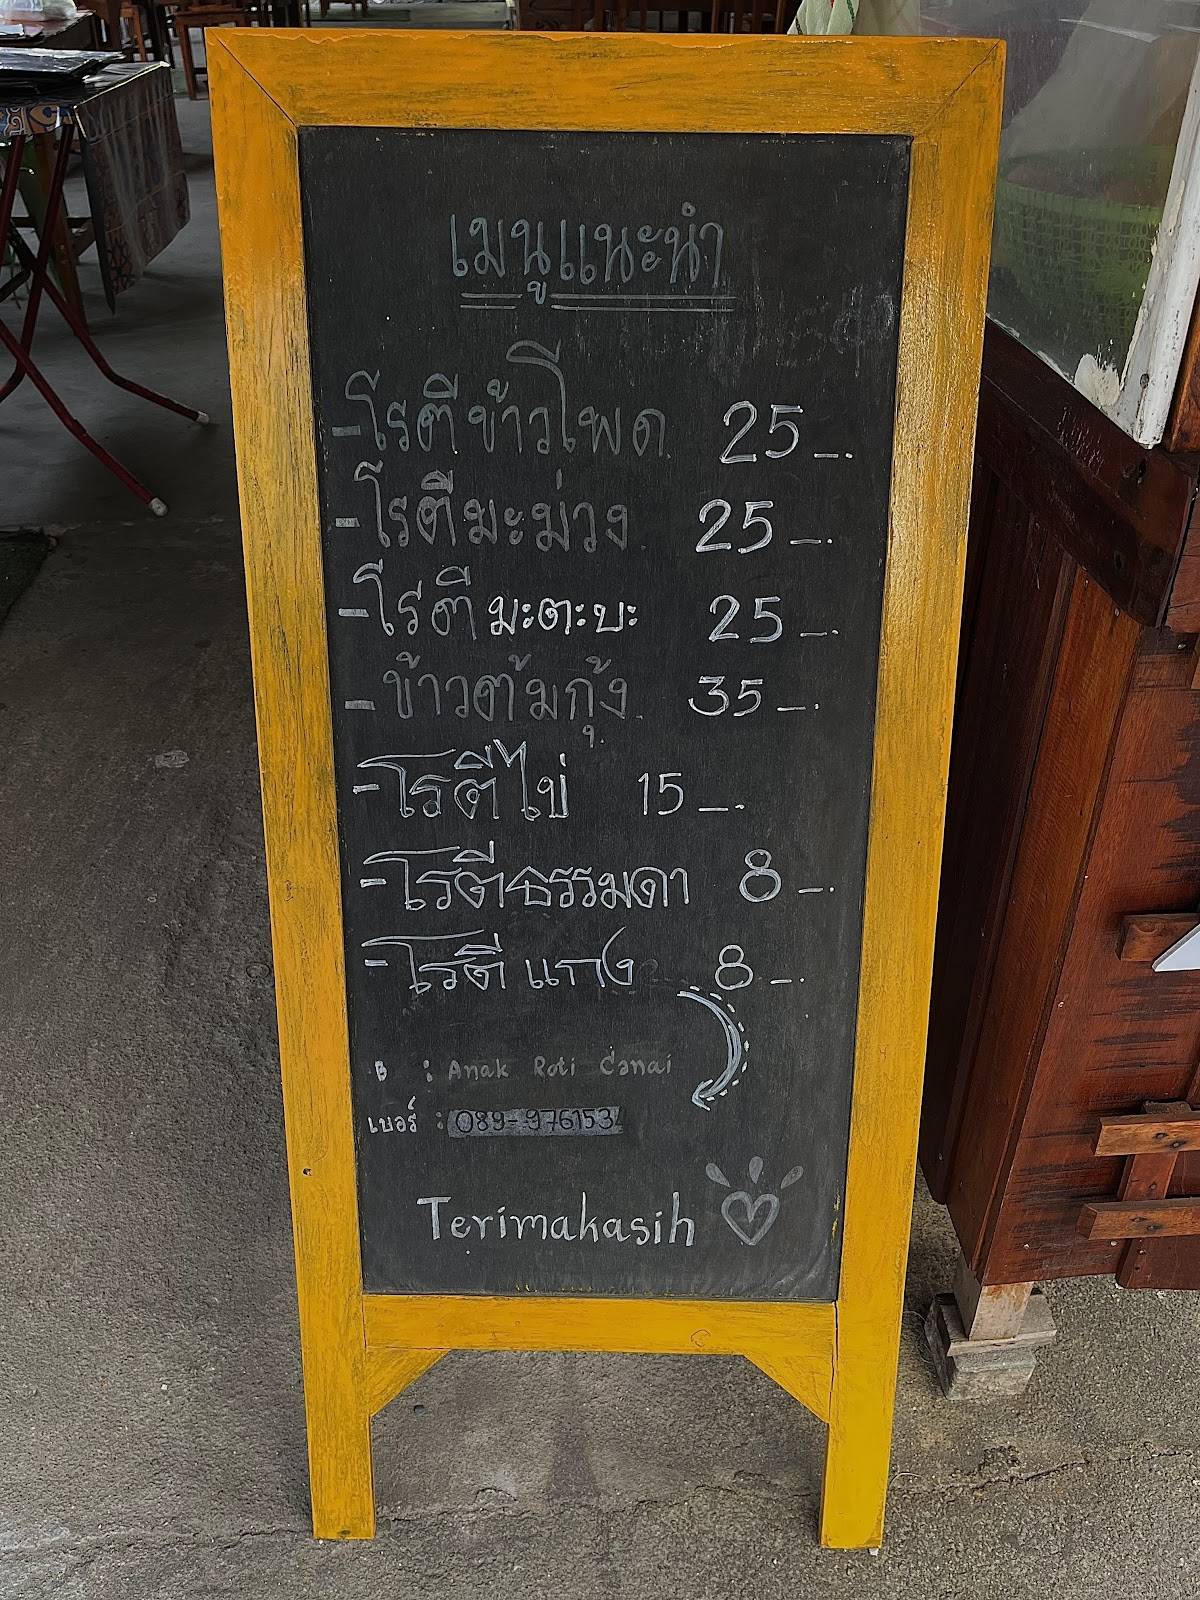 เมนูแนะนำ
-โรตีข้าวโพด 25 _.
-โรตีมะม่วง 25 _.
-โรตีมะตะบะ 25 _.
-ข้าวต้มกุ้ง 35 _.
-โรตีไข่ 15 _.
-โรตีธรรมดา 8 _.
-โรตีแกง 8 _.
: Anak Roti Canai
เบอร์ : 089-976153
Terimakasih